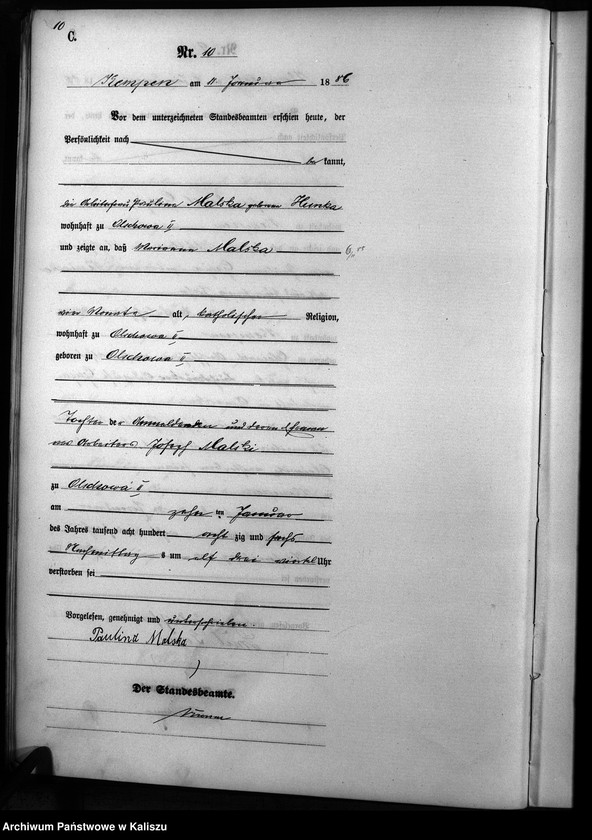 10
C.
Nr. 10
Kempen am 11 Januar 1886
Vor dem unterzeichneten Standesbeamten erschien heute, der
Persönlichkeit nach
be kannt,
die Arbeiterfrau Paulina Malska geborene Hunka
wohnhaft zu Olschowa II
und zeigte an, daß Marianna Malska
ein Monate alt, katholischer Religion,
wohnhaft zu Olschowa II
geboren zu Olschowa II
Tochter der Anmeldenden und deren
des Arbeiters Joseph Malski
zu Olschowa II
am zehn ten Januar
des Jahres tausend acht hundert acht zig und sechs
Nachmittag s um elf drei viertel Uhr
verstorben sei
Vorgelesen, genehmigt und unterschrieben.
Paulina Malska
Der Standesbeamte.
Archiwum Państwowe w Kaliszu